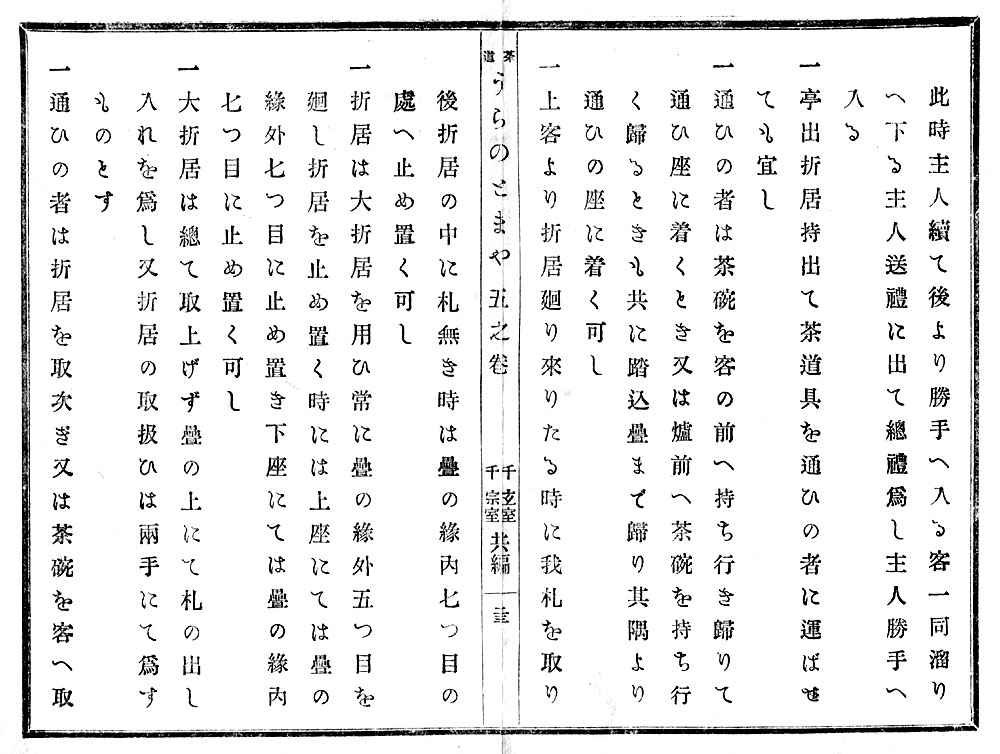 此時主人續て後より勝手へ入る客一同溜り
へ下る主人送禮に出て總禮爲し主人勝手へ
入る
一亭出折居持出て茶道具を通ひの者に運ばせ
ても宜し
一通ひの者は茶碗を客の前へ持ち行き歸りて
通ひ座に着くとき又は爐前へ茶碗を持ち行
く歸るとき も共に踏込疊まで歸り其隅より
通ひの座に着く可し
一上客より折居廻り來りたる時に我札を取り
茶道
うらのとまや五之卷
千玄室
千宗室
共編
後折居の中に札無き時は疊の緣內七つ目の
處へ止め置く可し
一折居は大折居を用ひ常に疊の緣外五つ目を
廻し折居を止め置く時には上座にては疊の
緣外七つ目に止め置き下座にては疊の緣內
七つ目に止め置く可し
一大折居は總て取上げず疊の上にて札の出し
入れを爲し又折居の取扱ひは兩手にて爲す
ものとす
一通ひの者は折居を取次ぎ又は茶碗を客へ取